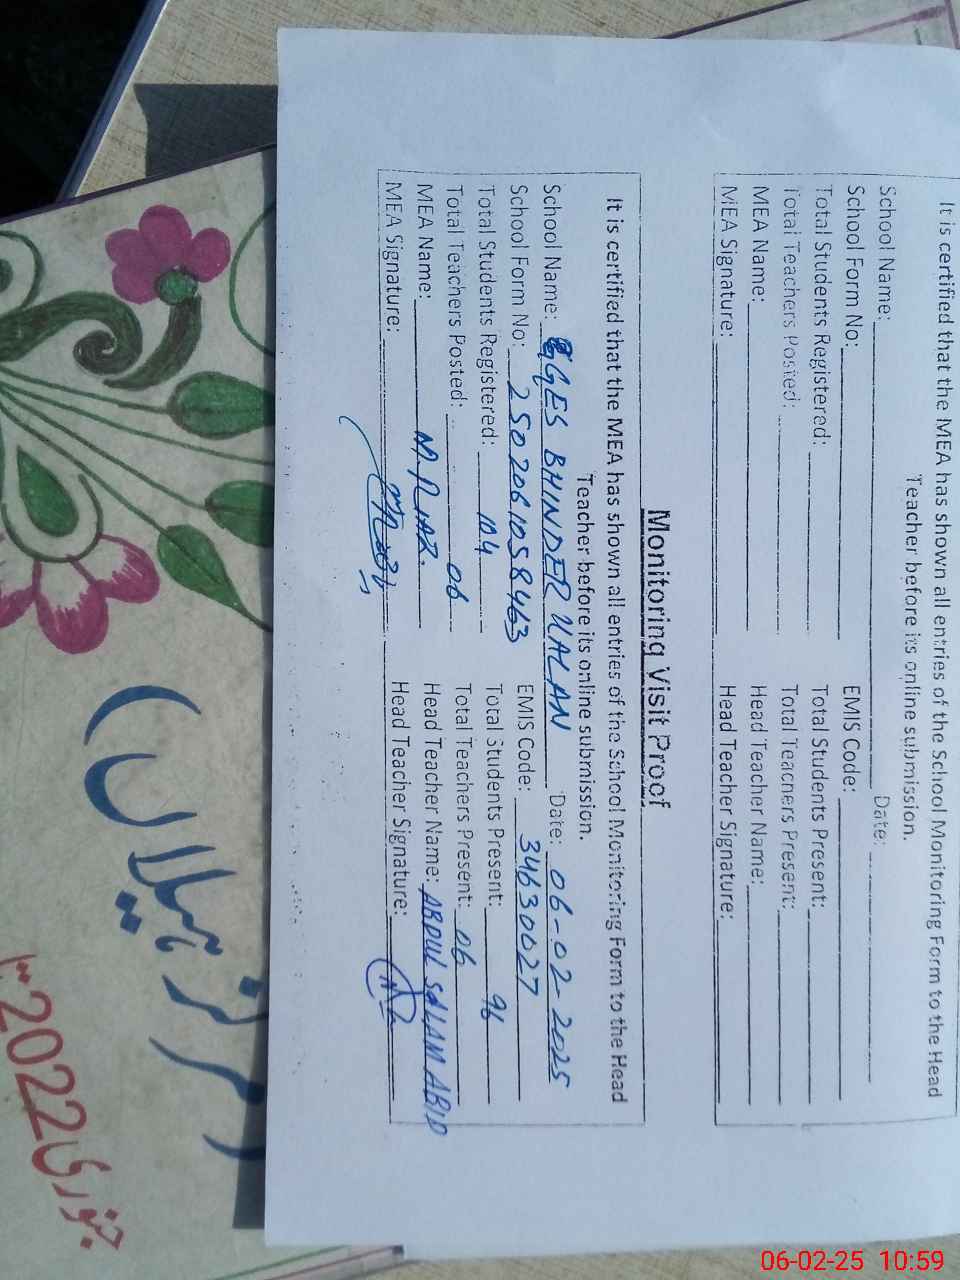 It is certified that the MEA has shown all entries of the School Monitoring Form to the Head
Teacher before its online submission.
School Name: Date:
School Form No: EMIS Code:
Total Students Registered: Total Students Present:
Total Teachers Posted: Total Teachers Present:
MEA Name: Head Teacher Name:
MEA Signature: Head Teacher Signature:
Monitoring Visit Proof
It is certified that the MEA has shown all entries of the School Monitoring Form to the Head
Teacher before its online submission.
School Name: GGES BHINDER UALAN Date: 06-02-2025
School Form No: 2502061058463 EMIS Code: 34630027
Total Students Registered: 104 Total Students Present: 96
Total Teachers Posted: 06 Total Teachers Present: 06
MEA Name: M. RIAZ. Head Teacher Name: ABDUL SALAM ABID
MEA Signature: Head Teacher Signature:
جنوری 2022
06-02-25 10:59